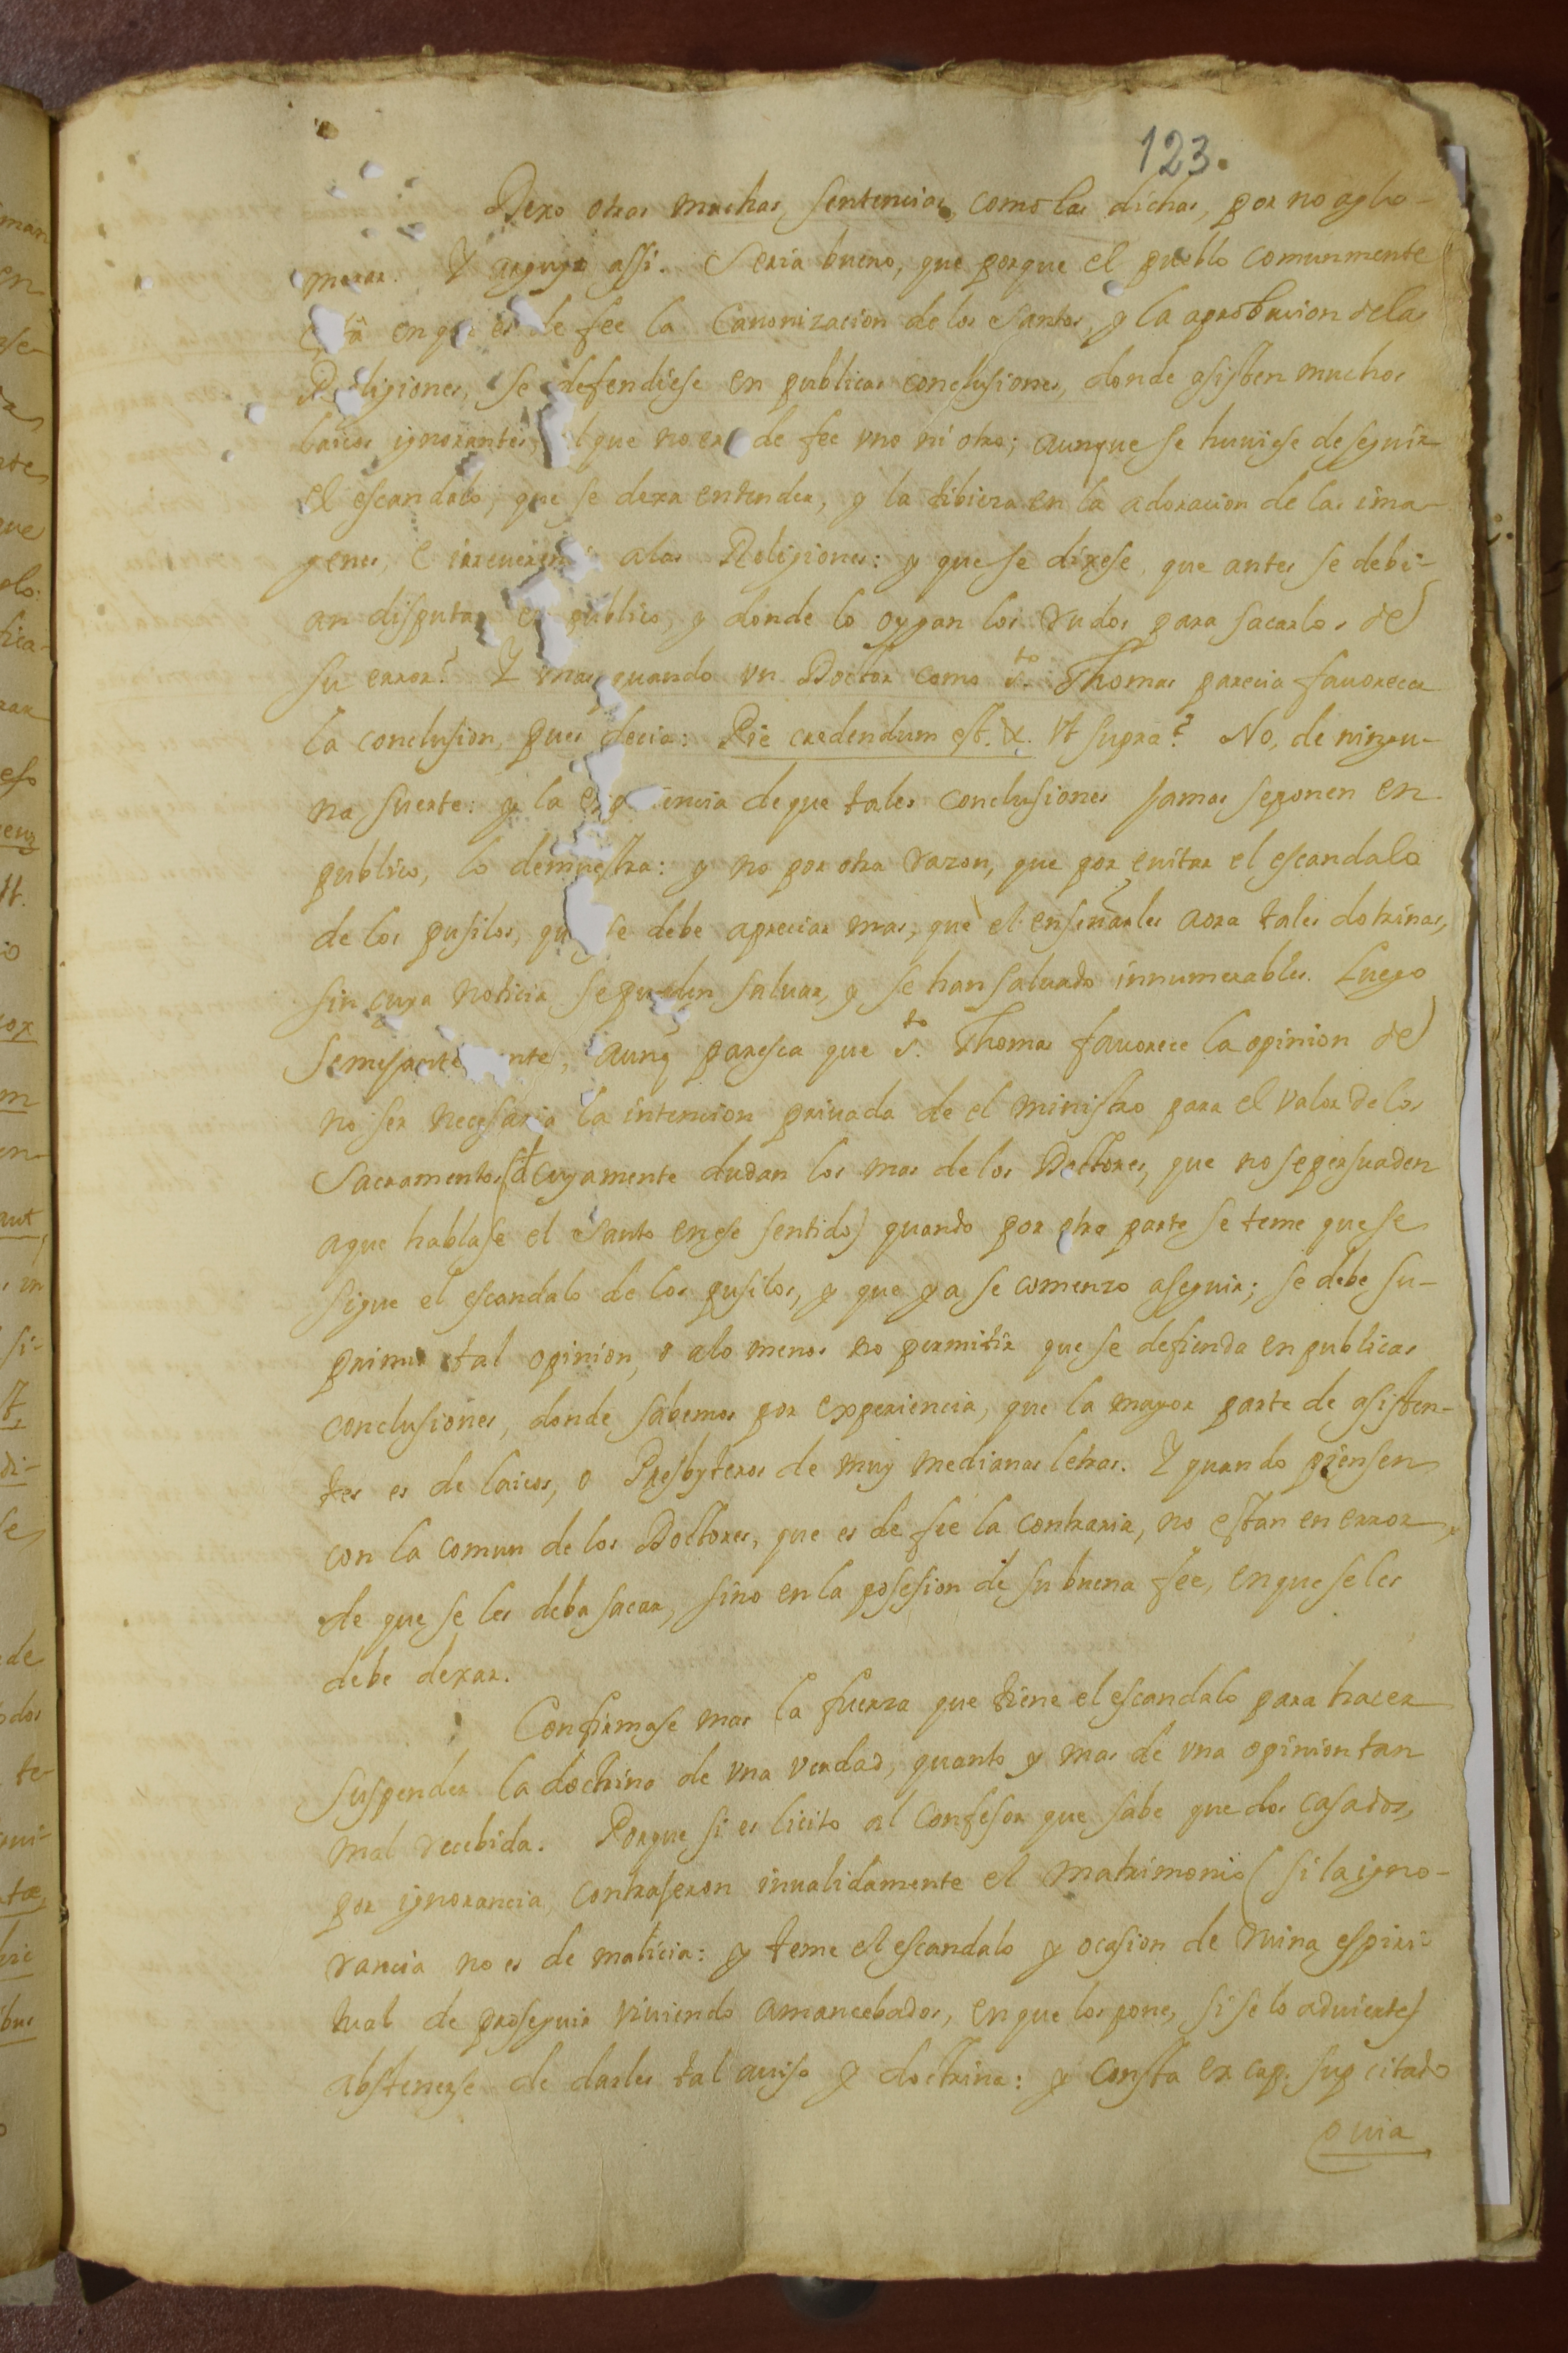 123.
Dexo otras muchas sentencias, como las dichas, por no aglo-
merar. Y arguyo assi. Seria bueno, que porque el pueblo comunmente
está en que es de fee la Canonizacion de los Santos, y la aprobacion delas
Religiones, se defendiese en publicas conclusiones, donde asisten muchos
laicos ignorantes, que no era de fee uno ni otro; aunque se huuiese de seguir
el escandalo, que se dexa entender, y la tibieza en la adoracion de las ima-
genes, e irreuerencia alas Religiones: y que se dixese, que antes se debi-
an disputar en publico, y donde lo oygan los rudos para sacarlos de
su error? Y mas quando un Doctor como S.to Thomas parecia fauorecer
la conclusion, pues decia: Pie credendum est. &. Vt supra? No, de ningu-
na suerte: y la experiencia deque tales conclusiones jamas seponen en
publico, lo demuestra: y no por otra razon, que por euitar el escandalo
de los pusilos, que se debe apreciar mas, que el enseñarles aora tales dotrinas,
sin cuya noticia sepueden saluar, y se han saluado innumerables. Luego
semejantemente, aunq paresca que S.to Thomas fauorece la opinion de
no ser necesaria la intencion priuada de el ministro para el valor delos
Sacramentos (d cuyamente dudan los mas de los Doctores, que no sepersuaden
aque hablase el Santo enese sentido) quando por otra parte se teme quese
sigue el escandalo de los pusilos, y que ya se comenzo aseguir; se debe su-
primir tal opinion, o alo menos no permitir que se defienda en publicas
conclusiones, donde sabemos por experiencia, que la mayor parte de asisten-
tes es de laicos, o Presbyteros de muy medianas letras. Y quando piensen
con la comun de los Doctores, que es de fee la contraria, no estan en error,
de que se les deba sacar, sino en la posesion de su buena fee, en que se les
debe dexar.
Confirmase mas la fuerza que tiene el escandalo para hacer
suspender la doctrina de una verdad, quanto y mas de una opinion tan
mal recebida. Porque si es licito al confesor que sabe que dos casados,
por ignorancia, contrajeron inualidamente el matrimonio (si la igno-
rancia no es de malicia: y teme el escandalo y ocasion de ruina espiri-
tual de proseguir viuiendo amancebados, en que los pone, si se lo aduierte)
abstenerse de darles tal auiso y doctrina: y consta ex cap. sup citato
quia